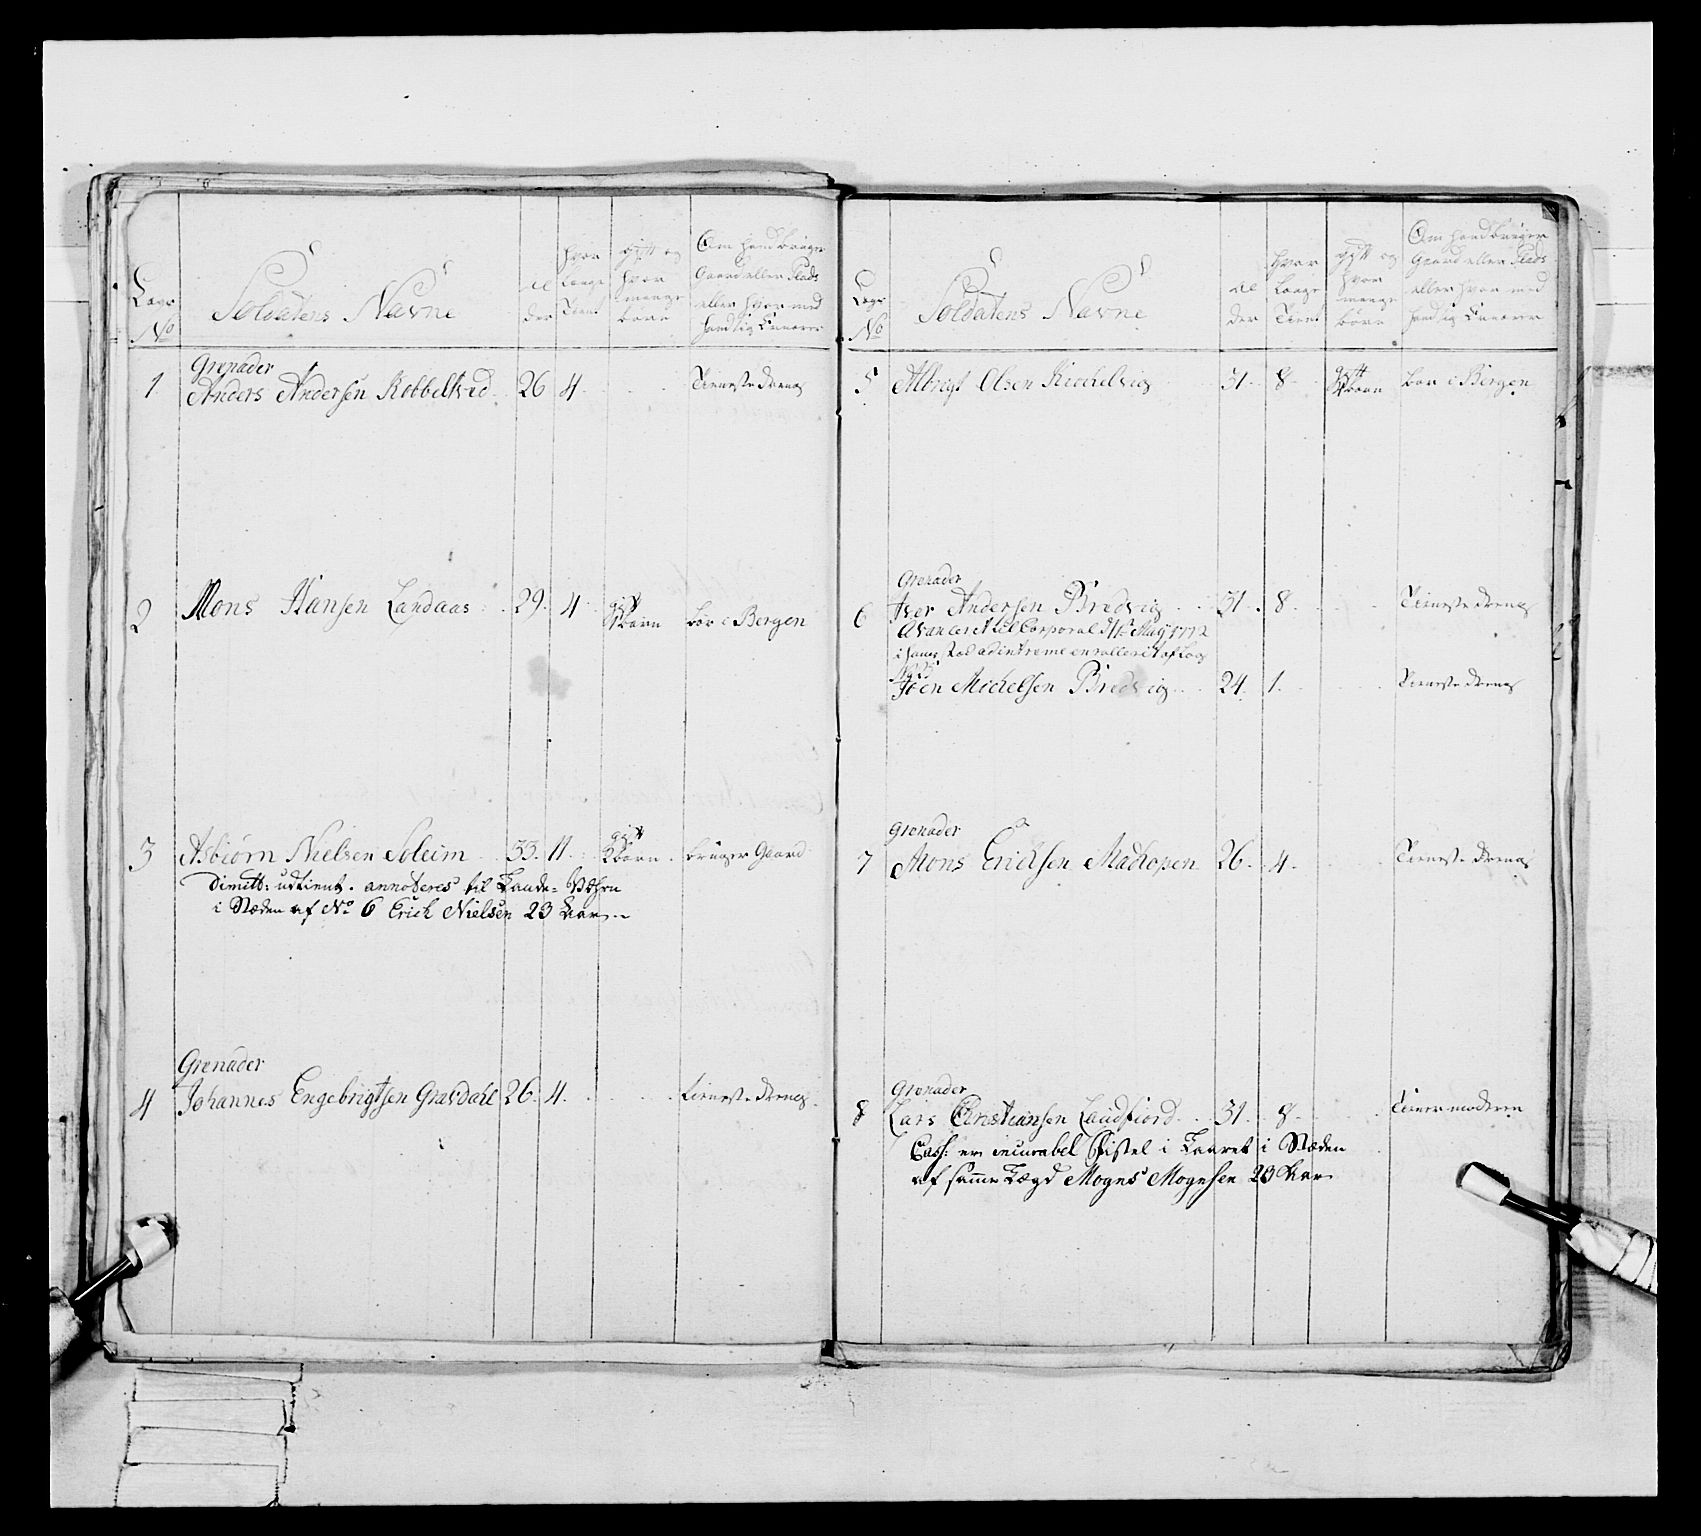 Lægs No
Soldatens Navne
al der
hvor Længe Tient
gift og hvor mange børn
Om hand bruger Gaard eller Plads eller hvor med hand sig Ernærer
Grenader
1. Anders Andersen Kobbeltved 26 4 Tieneste dreng
2 Mons Hansen Landaas 29. 4 gift 1 barn bor i Bergen
3 Asbiørn Nielsen Soleim 33. 11. gift 2 børn bruger Gaard
Dimitt: udtient. annoteres til Lande-Væhrn
i Stæden af No 6 Erich Nielsen 23 Aar
Grenader
4 Johannes Engebrigtsen Gravdahl 26. 4. tieneste dreng
Lægs No
Soldatens Navne
al der
hvor Længe Tient
gift og hvor mange børn
Om hand bruger Gaard eller Plads eller hvor med hand sig Ernærer
5 Albrigt Olsen 31 8 gift børn boer i Bergen
Grenader
6 Iver Andersen Bredvig 31. 8. Tieneste dreng
Avanceret til Corporal d. May 1772
i hans stæd ad intreme enrolleret af Læg
No
Joen Michelsen Bredvig 24. 1. Tieneste dreng
Grenader
7 Mons Erichsen Madtopen 26. 4. Tieneste dreng
Grenader
8 Lars Christiansen Laudfiord 31. 8 Tiener moderen
Cass: er incurabel Fistel i Laaret i Stæden
af samme Lægd Mogns Mognsen 23 Aar